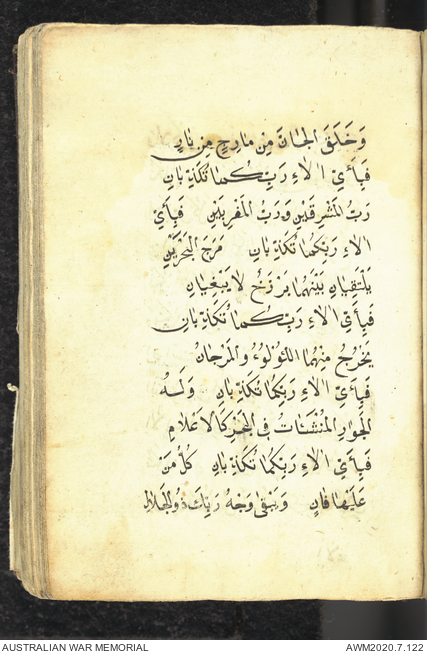 وَخَلَقَ الْجَانَّ مِنْ مَارِجٍ مِنْ نَارٍ
فَبِأَيِّ اٰلَاءِ رَبِّكُمَا تُكَذِّبَانِ
رَبُّ الْمَشْرِقَيْنِ وَرَبُّ الْمَغْرِبَيْنِ فَبِأَيِّ
اٰلَاءِ رَبِّكُمَا تُكَذِّبَانِ مَرَجَ الْبَحْرَيْنِ
يَلْتَقِيَانِ بَيْنَهُمَا بَرْزَخٌ لَا يَبْغِيَانِ
فَبِأَيِّ اٰلَاءِ رَبِّكُمَا تُكَذِّبَانِ
يَخْرُجُ مِنْهُمَا اللُّؤْلُؤُ وَالْمَرْجَانُ
فَبِأَيِّ اٰلَاءِ رَبِّكُمَا تُكَذِّبَانِ وَلَهُ
الْجَوَارِ الْمُنْشَئَاتُ فِي الْبَحْرِ كَالْاَعْلَامِ
فَبِأَيِّ اٰلَاءِ رَبِّكُمَا تُكَذِّبَانِ كُلُّ مَنْ
عَلَيْهَا فَانٍ وَيَبْقٰى وَجْهُ رَبِّكَ ذُو الْجَلَالِ
AUSTRALIAN WAR MEMORIAL AWM2020.7.122